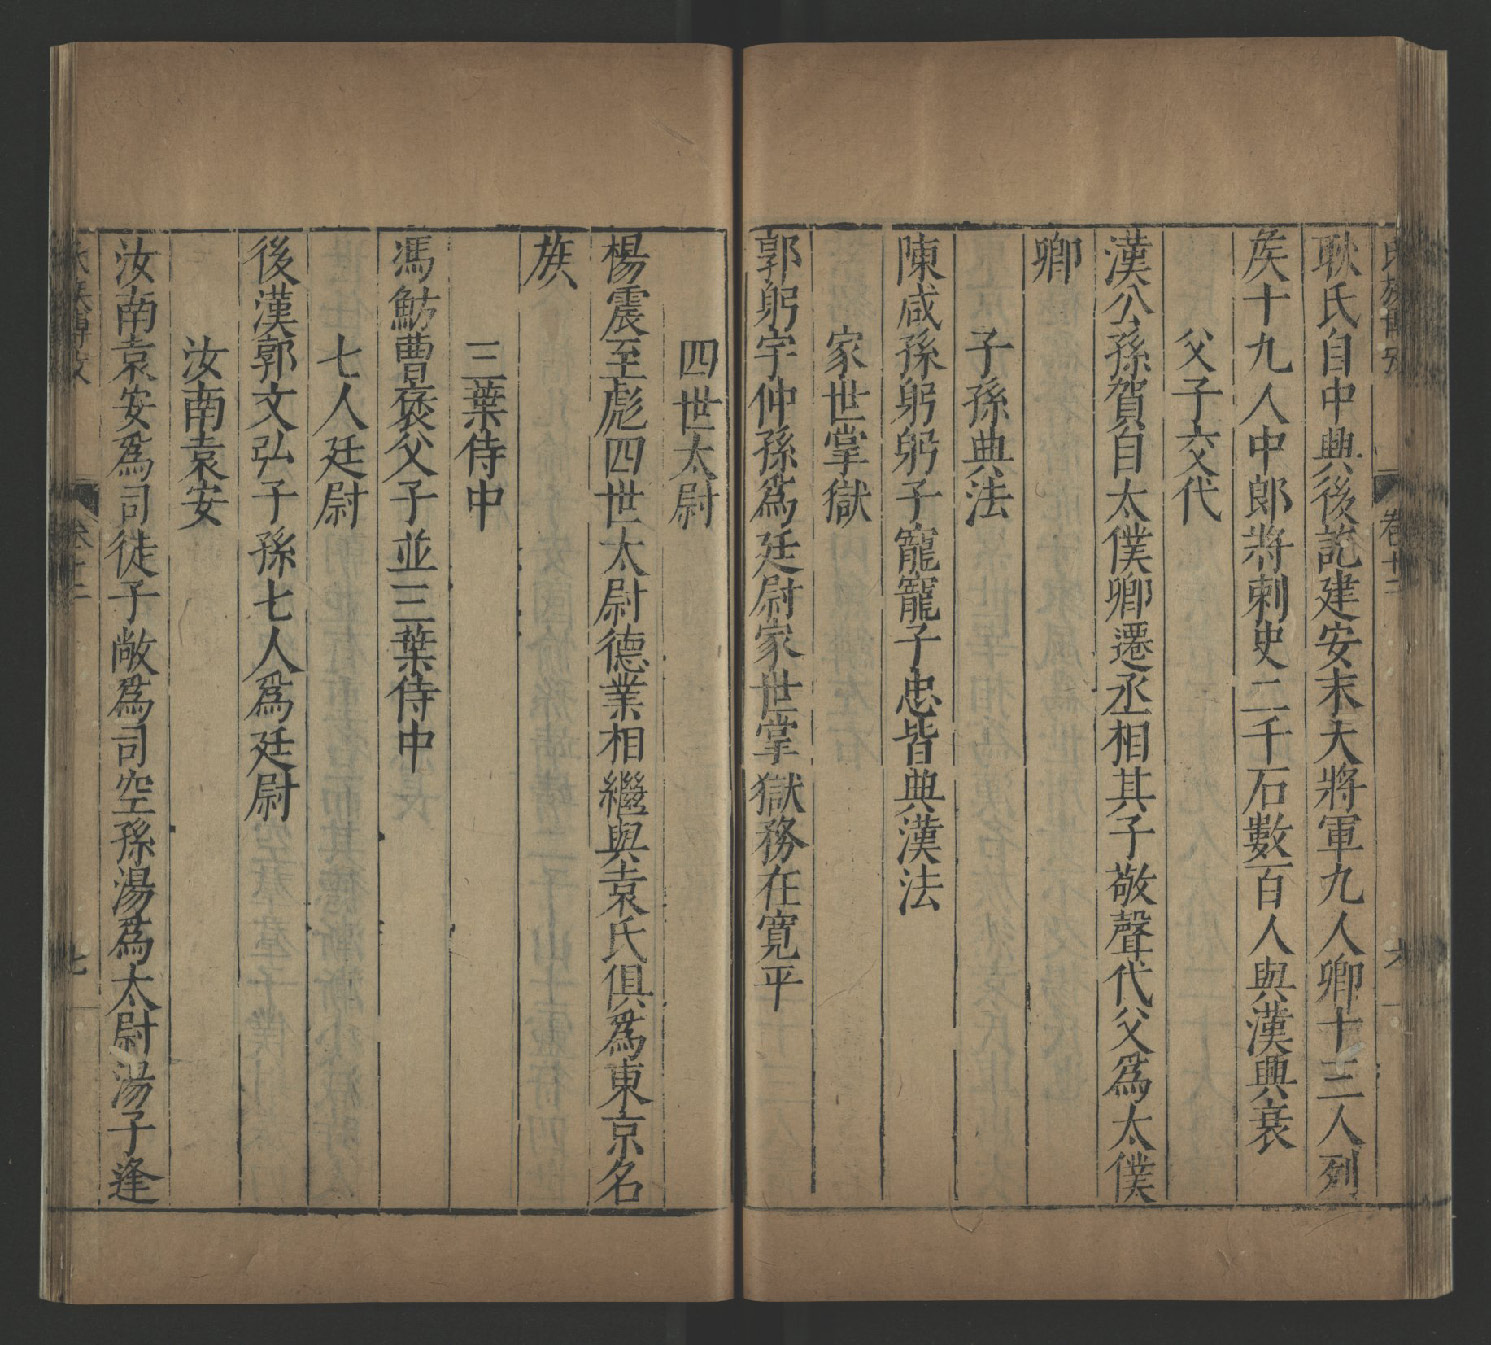 耿氏自中興後訖建安末大將軍九人卿十三人列
矦十九人中郎將刺史二千石數百人與漢興衰
父子交代
漢公孫賀自太僕卿遷丞相其子敬聲代父爲太僕
卿
子孫典法
陳咸孫躬躬子寵寵子忠皆典漢法
家世掌獄
郭躬字仲孫爲廷尉家世掌獄務在寬平
四世太尉
楊震至彪四世太尉德業相繼與袁氏俱爲東京名
族
三葉侍中
馮魴曹褒父子並三葉侍中
七人廷尉
後漢郭文弘子孫七人爲廷尉
汝南袁安
汝南袁安爲司徒子敞爲司空孫湯爲太尉湯子逢
卷十二
七